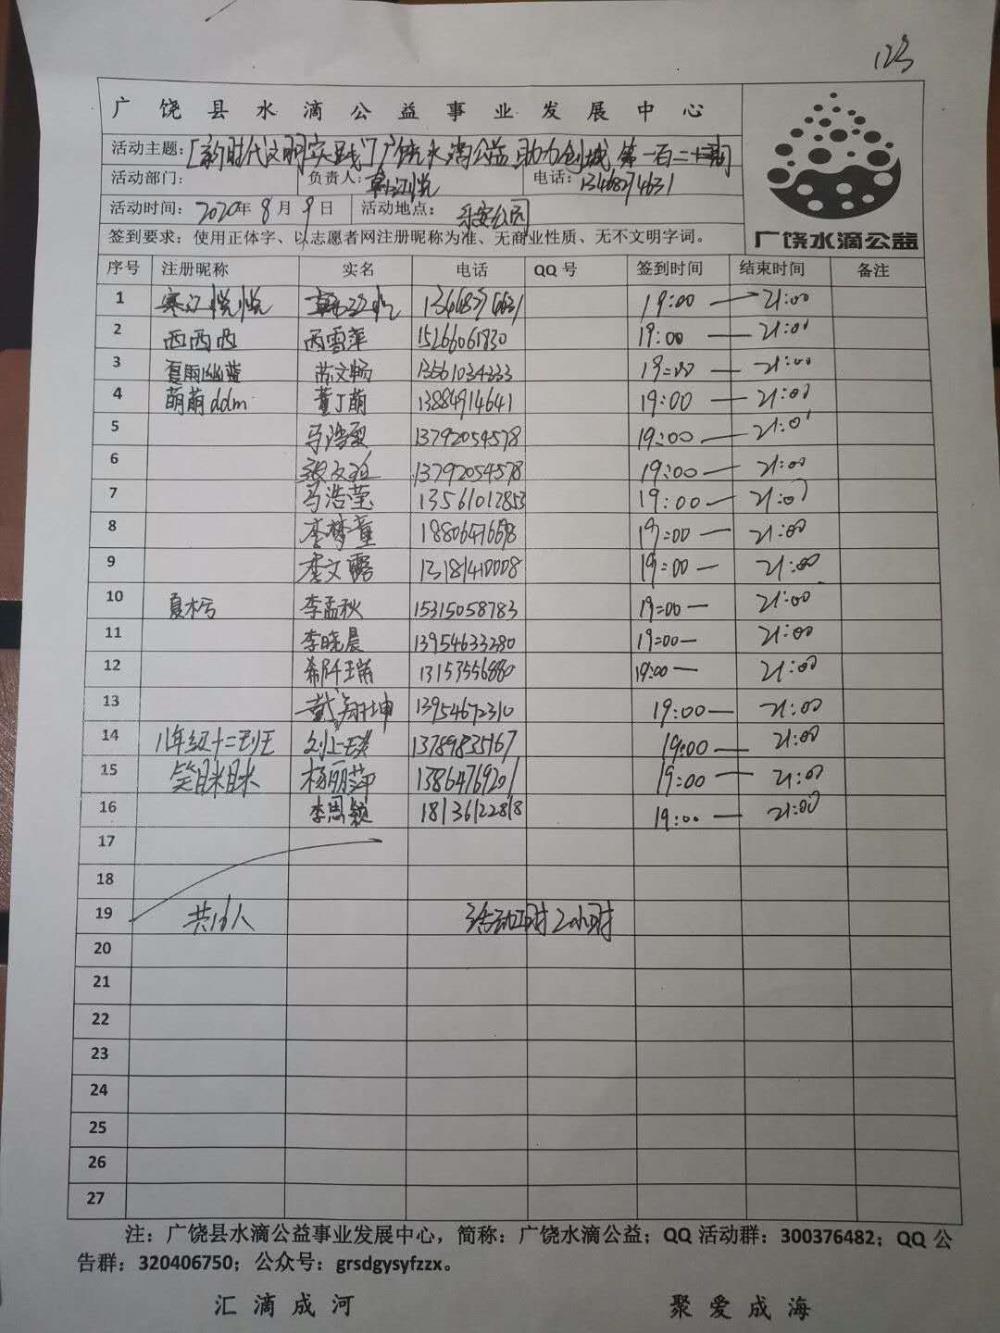 123
广饶县水滴公益事业发展中心
活动主题：[新时代文明实践]广饶水滴公益助力创城第一百二十三期
活动部门： 负责人： 电话：13468274631
活动时间：2020年8月9日 活动地点：乐安公园
签到要求：使用正体字、以志愿者网注册昵称为准、无商业性质、无不文明字词。
广饶水滴公益
序号 注册昵称 实名 电话 QQ号 签到时间 结束时间 备注
1 寒江悦悦 19:00 — 21:00
2 西西西 丙雪萍 15266061830 19:00 — 21:00
3 夏雨幽蓝 苏文畅 13561034333 19:00 — 21:00
4 萌萌ddm 董丁萌 13884914641 19:00 — 21:00
5 马浩 13792054578 19:00 — 21:00
6 13792054578 19:00 — 21:00
7 马浩莹 13561012853 19:00 — 21:00
8 李梦童 19:00 — 21:00
9 李文露 13181410008 19:00 — 21:00
10 夏木 李孟秋 15315058783 19:00 — 21:00
11 李晓晨 13954633280 19:00 — 21:00
12 13153556880 19:00 — 21:00
13 戴翔坤 13954672310 19:00 — 21:00
14 八年级十二班王 13789835167 19:00 — 21:00
15 笑眯眯 杨丽萍 13864769201 19:00 — 21:00
16 李思颖 18136122818 19:00 — 21:00
17
18
19 共16人 活动工时2小时
20
21
22
23
24
25
26
27
注：广饶县水滴公益事业发展中心，简称：广饶水滴公益；QQ活动群：300376482；QQ公
告群：320406750；公众号：grsdgysyfzzx。
汇滴成河 聚爱成海